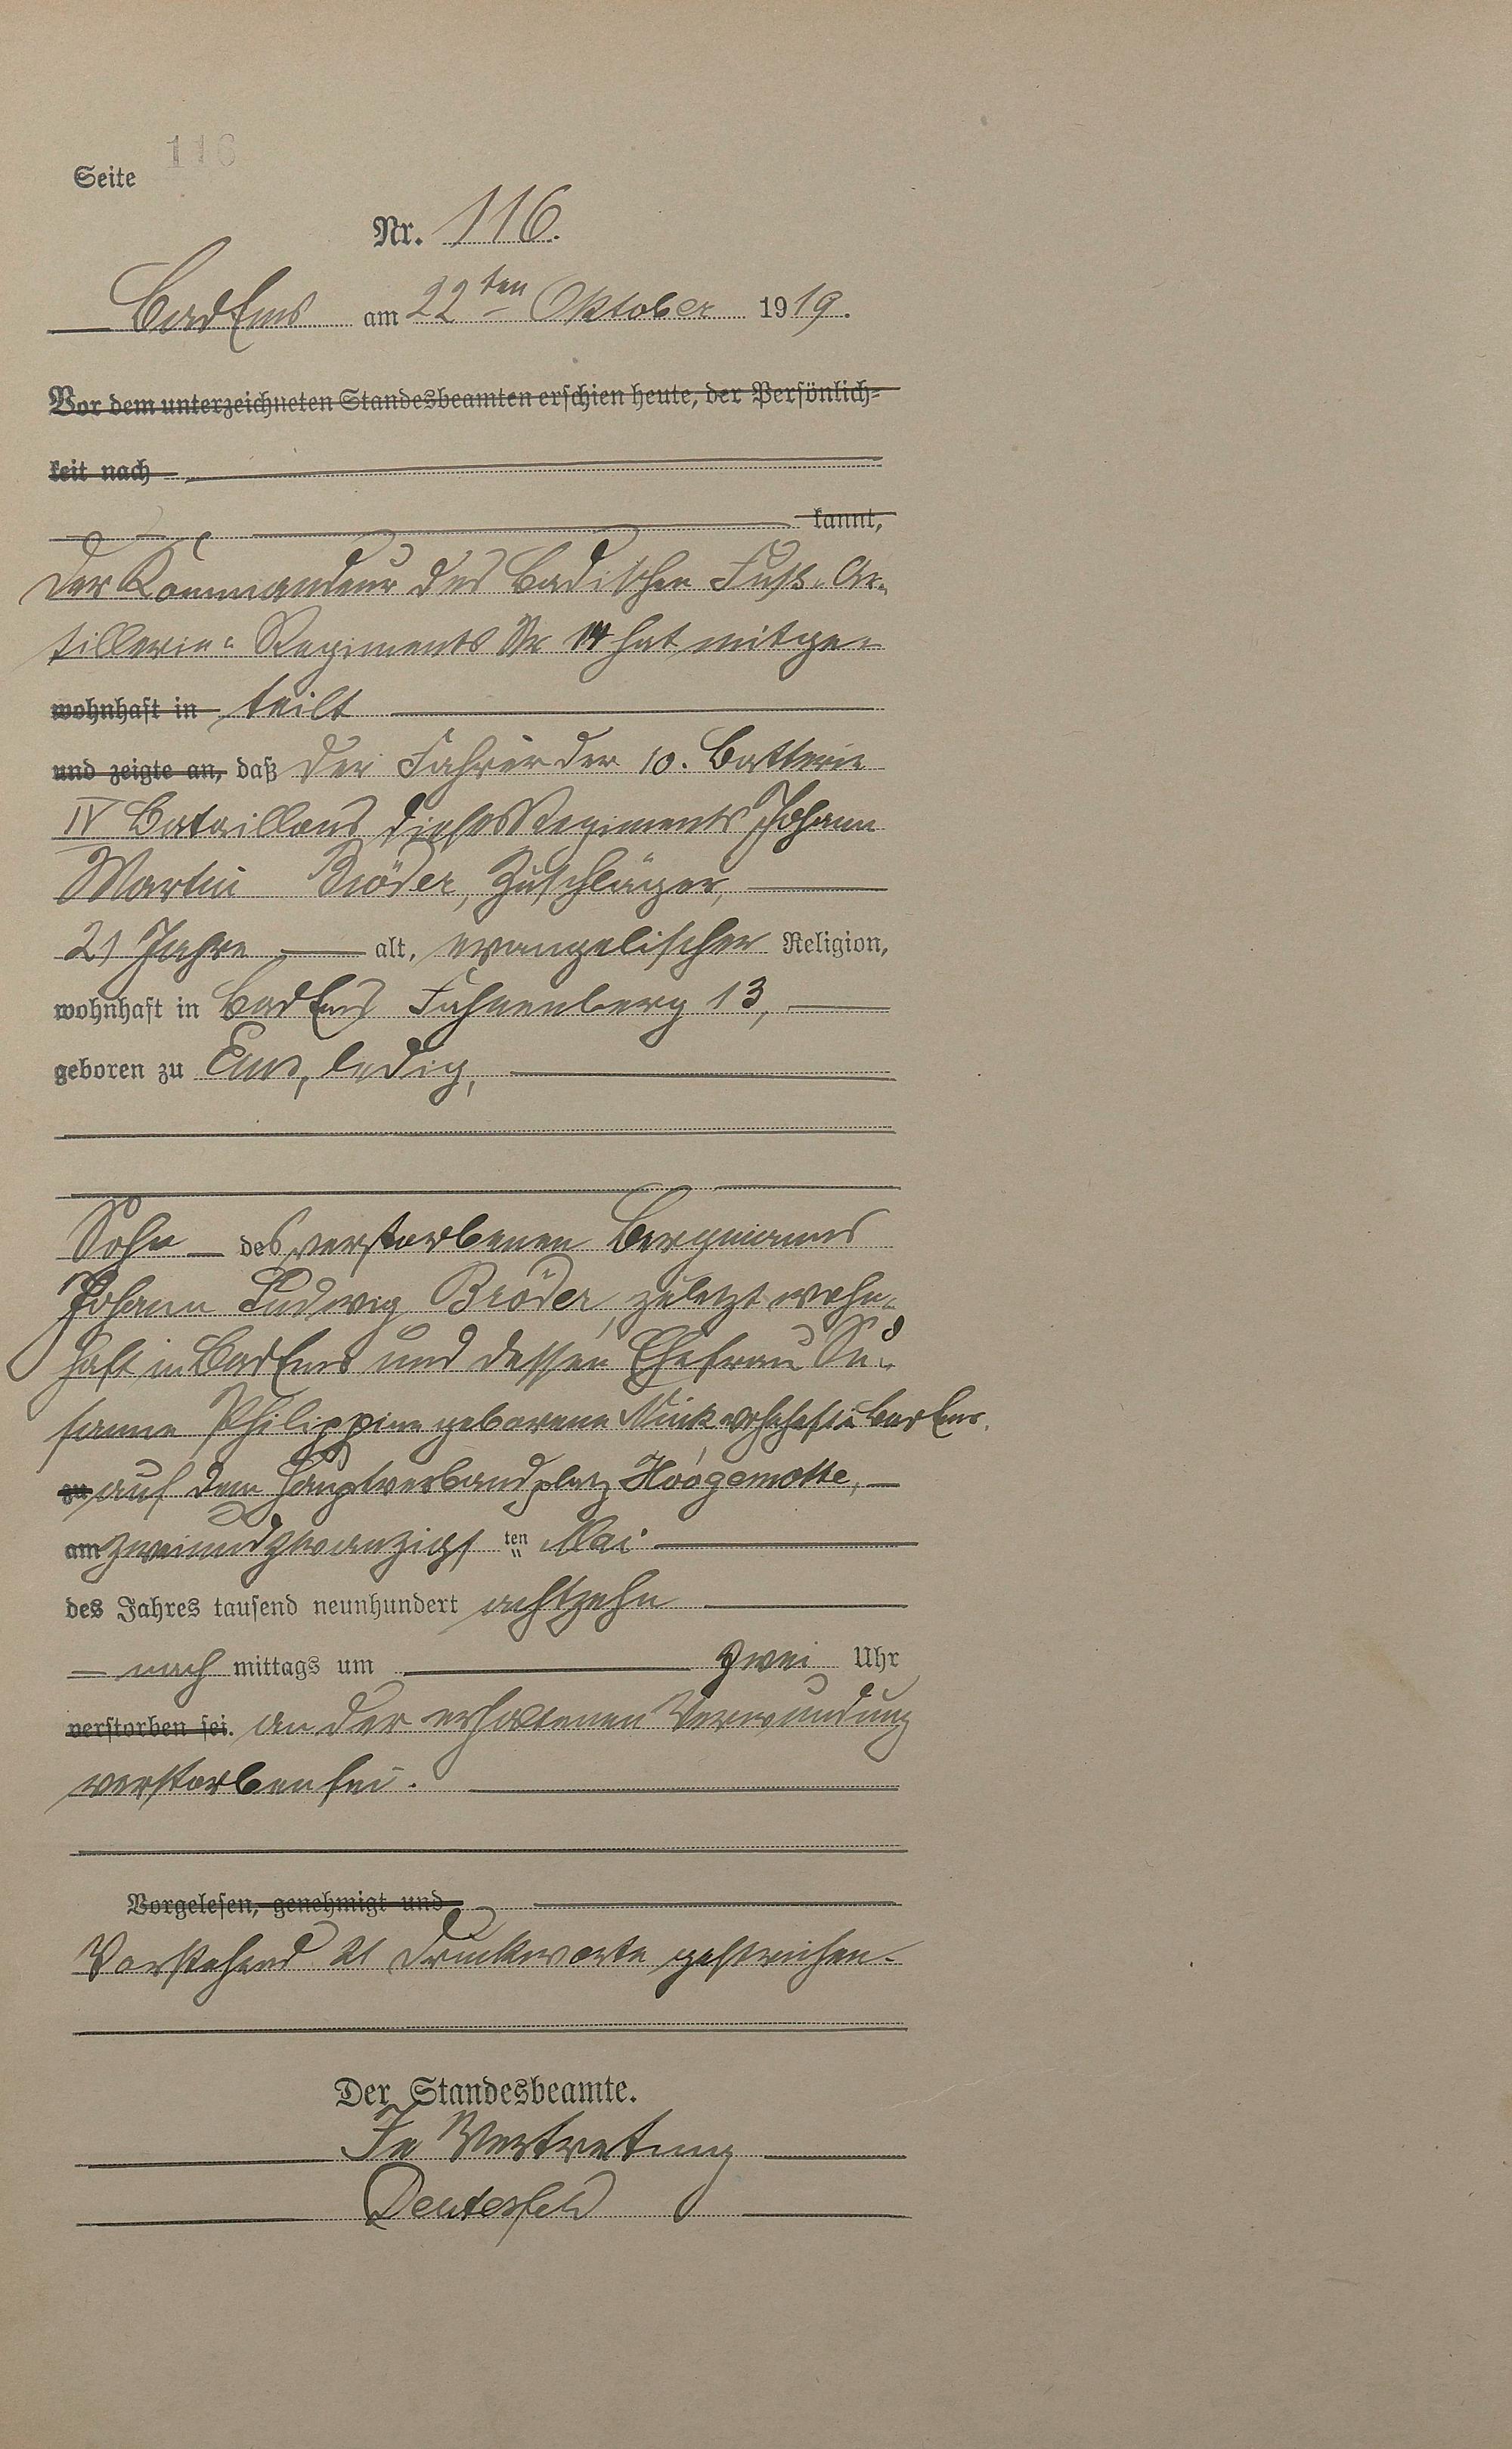 116
Seite
Nr. 116.
Bad Ems am 22ten Oktober 1919.
Vor dem unterzeichneten Standesbeamten erschien heute, der Persönlich-
keit nach
kannt,
Der Kommandeur des Badischen Fuß-Ar-
tillerie-Regiments Nr 14 hat mitge-
wohnhaft in teilt
und zeigte an, daß der Fahrer der 10. Batterie
IV Bataillons dieses Regiments Johann
Martin Bröder, Zuschläger,
21 Jahre alt, evangelischer Religion,
wohnhaft in Bad Ems Fahnenberg 13,
geboren zu Ems, ledig,
Sohn des verstorbenen Bergmanns
Johann Ludwig Bröder, zuletzt wohn-
haft in Bad Ems und dessen Ehefrau Su-
sanna Philippine geborene wohnhaft in Bad Ems.
zu auf dem Hauptverbandplatz Hoogemotte,
am zweiundzwanzigsten Mai
des Jahres tausend neunhundert achtzehn
nach mittags um zwei Uhr
verstorben sei. an der erhaltenen Verwundung
verstorben sei.
Vorgelesen, genehmigt und
Vorstehend 21 Druckworte gestrichen.
Der Standesbeamte.
In Vertretung